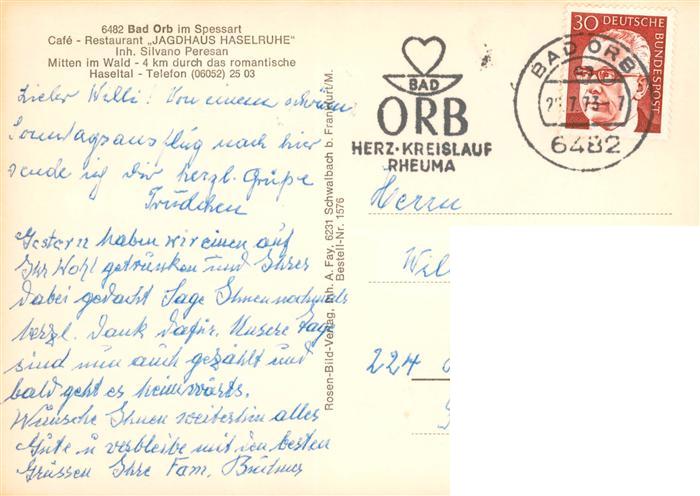 6482 Bad Orb im Spessart
Café - Restaurant „JAGDHAUS HASELRUHE"
Inh. Silvano Peresan
Mitten im Wald - 4 km durch das romantische
Haseltal - Telefon (06052) 25 03
Lieber Willi! Von einem schönen
Sonntagsausflug nach hier
sende ich dir herzl. Grüße
Trudchen
Gestern haben wir einen auf
Ihr Wohl getrunken und Ihrer
dabei gedacht Sage Ihnen nochmals
herzl. Dank dafür. Unsere Tage
sind nun auch gezählt und
bald geht es heimwärts.
Wünsche Ihnen weiterhin alles
Gute u verbleibe mit den besten
Grüssen Ihre Fam.
Rosen-Bild-Verlag, Inh. A. Fay, 6231 Schwalbach b. Frankfurt/M.
Bestell-Nr. 1576
BAD
ORB
HERZ·KREISLAUF
RHEUMA
BAD ORB
7.73-7
6482
30 DEUTSCHE
BUNDESPOST
Herrn
Will
224